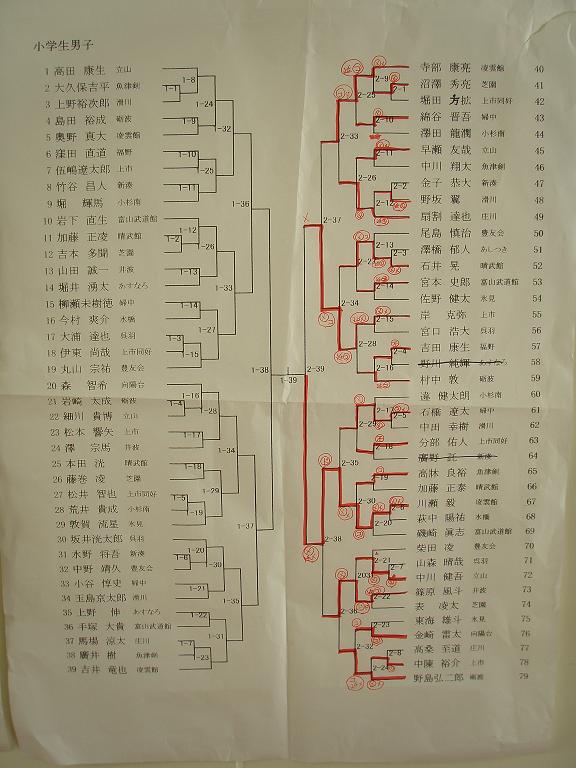 小学生男子
1 高田 康生 立山
2 大久保吉平 魚津剣
3 上野裕次郎 滑川
4 島田 裕成 砺波
5 奥野 真大 凌雲館
6 窪田 直道 福野
7 伍嶋遼太郎 上市
8 竹谷 昌人 新湊
9 堀 輝馬 小杉南
10 岩下 直生 富山武道館
11 加藤 正凌 晴武館
12 吉本 多聞 芝園
13 山田 誠一 井波
14 堀井 湧太 あすなろ
15 柳瀬未樹徳 婦中
16 今村 爽介 水橋
17 大浦 達也 呉羽
18 伊東 尚哉 上市同好
19 丸山 宗祐 豊友会
20 森 智希 向陽台
21 岩崎 太成 砺波
22 細川 貴博 立山
23 松本 響矢 上市
24 澤 宗馬 井波
25 本田 洸 晴武館
26 藤巻 凌 芝園
27 松井 智也 上市同好
28 荒井 貴成 小杉南
29 敦賀 流星 氷見
30 坂井洸太郎 呉羽
31 水野 将吾 新湊
32 中野 靖久 豊友会
33 小谷 惇史 婦中
34 玉島京太郎 滑川
35 上野 伸 あすなろ
36 手塚 大貴 富山武道館
37 馬場 涼太 庄川
38 廣井 樹 魚津剣
39 吉井 竜也 凌雲館
1-8
1-1
1-24
1-9
1-32
1-10
1-25
1-11
1-36
1-12
1-2
1-26
1-13
1-33
1-14
1-27
1-3
1-15
1-38
1-16
1-4
1-28
1-17
1-34
1-18
1-29
1-5
1-19
1-37
1-20
1-6
1-30
1-21
1-35
1-22
1-31
1-7
1-23
1-39
2-39
寺部 康亮 凌雲館 40
沼澤 秀亮 芝園 41
堀田 方拡 上市同好 42
綿谷 晋吾 婦中 43
澤田 龍潤 小杉南 44
早瀬 友哉 立山 45
中川 翔太 魚津剣 46
金子 恭大 新湊 47
野坂 翼 滑川 48
扇割 達也 庄川 49
尾島 慎治 豊友会 50
澤橋 郁人 あしつき 51
石井 晃 晴武館 52
宮本 史郎 富山武道館 53
佐野 健太 氷見 54
岸 克弥 上市 55
宮口 浩大 呉羽 56
吉田 康生 福野 57
野川 純輝 あすなろ 58
村中 敦 砺波 59
遠 健太朗 小杉南 60
石橋 遼太 婦中 61
中田 幸樹 滑川 62
分部 佑人 上市同好 63
廣野 託 新湊 64
高林 良裕 魚津剣 65
加藤 正泰 晴武館 66
川瀬 毅 凌雲館 67
萩中 陽祐 水橋 68
磯崎 眞志 富山武道館 69
柴田 凌 豊友会 70
山森 晴哉 呉羽 71
中川 健吾 立山 72
篠原 風斗 井波 73
表 凌太 芝園 74
東海 雄斗 氷見 75
金崎 雷太 向陽台 76
高桑 至道 庄川 77
中陳 裕介 上市 78
野島弘二郎 砺波 79
2-9
2-1
2-25
2-10
2-33
2-11
2-26
2-2
2-12
2-37
2-13
2-3
2-23
2-14
2-34
2-15
2-28
2-4
2-16
2-17
2-5
2-29
2-18
2-35
2-19
2-30
2-6
2-20
2-38
2-21
2-7
2-36
2-23
2-32
2-8
2-24